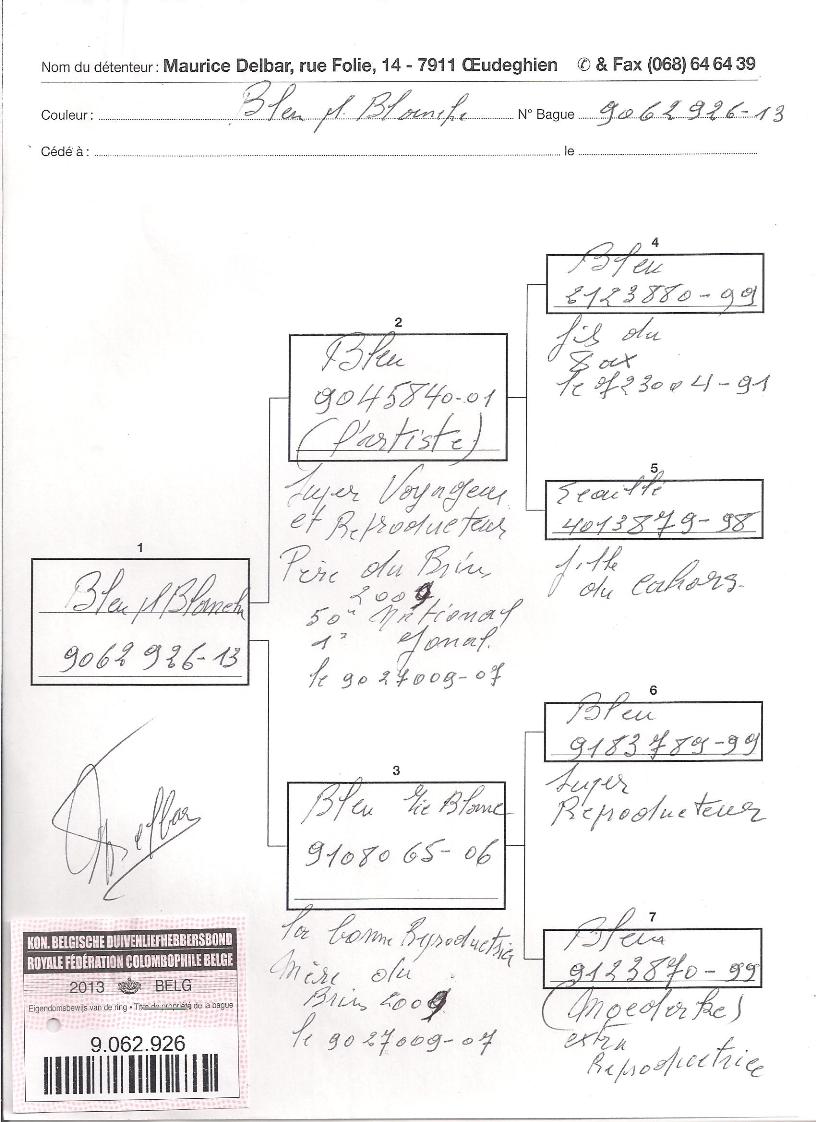 Nom du détenteur : Maurice Delbar, rue Folie, 14 - 7911 Œudeghien ✆ & Fax (068) 64 64 39
Couleur : Bleu pl. Blanche N° Bague 9062926-13
Cédé à : le
4
Bleu
2123880-99
fils du
le 23004-91
2
Bleu
9045840-01
(l'artiste)
Super Voyageur
et Reproducteur
Père du Brin
2009
50e National
1e Zonal.
le 9027009-07
5
Ecaillé
4013879-98
fille
du Cahors.
1
Bleu pl Blanche
9062926-13
6
Bleu
9183789-99
Super
Reproducteur
3
Bleu
9108065-06
La bonne Reproductrice
Mère du
Brin 2009
le 9027009-07
7
Bleu
9123870-99
extra
Reproductrice
Delbar
KON. BELGISCHE DUIVENLIEFHEBBERSBOND
ROYALE FÉDÉRATION COLOMBOPHILE BELGE
2013 BELG
Eigendomsbewijs van de ring • Titre de propriété de la bague
9.062.926